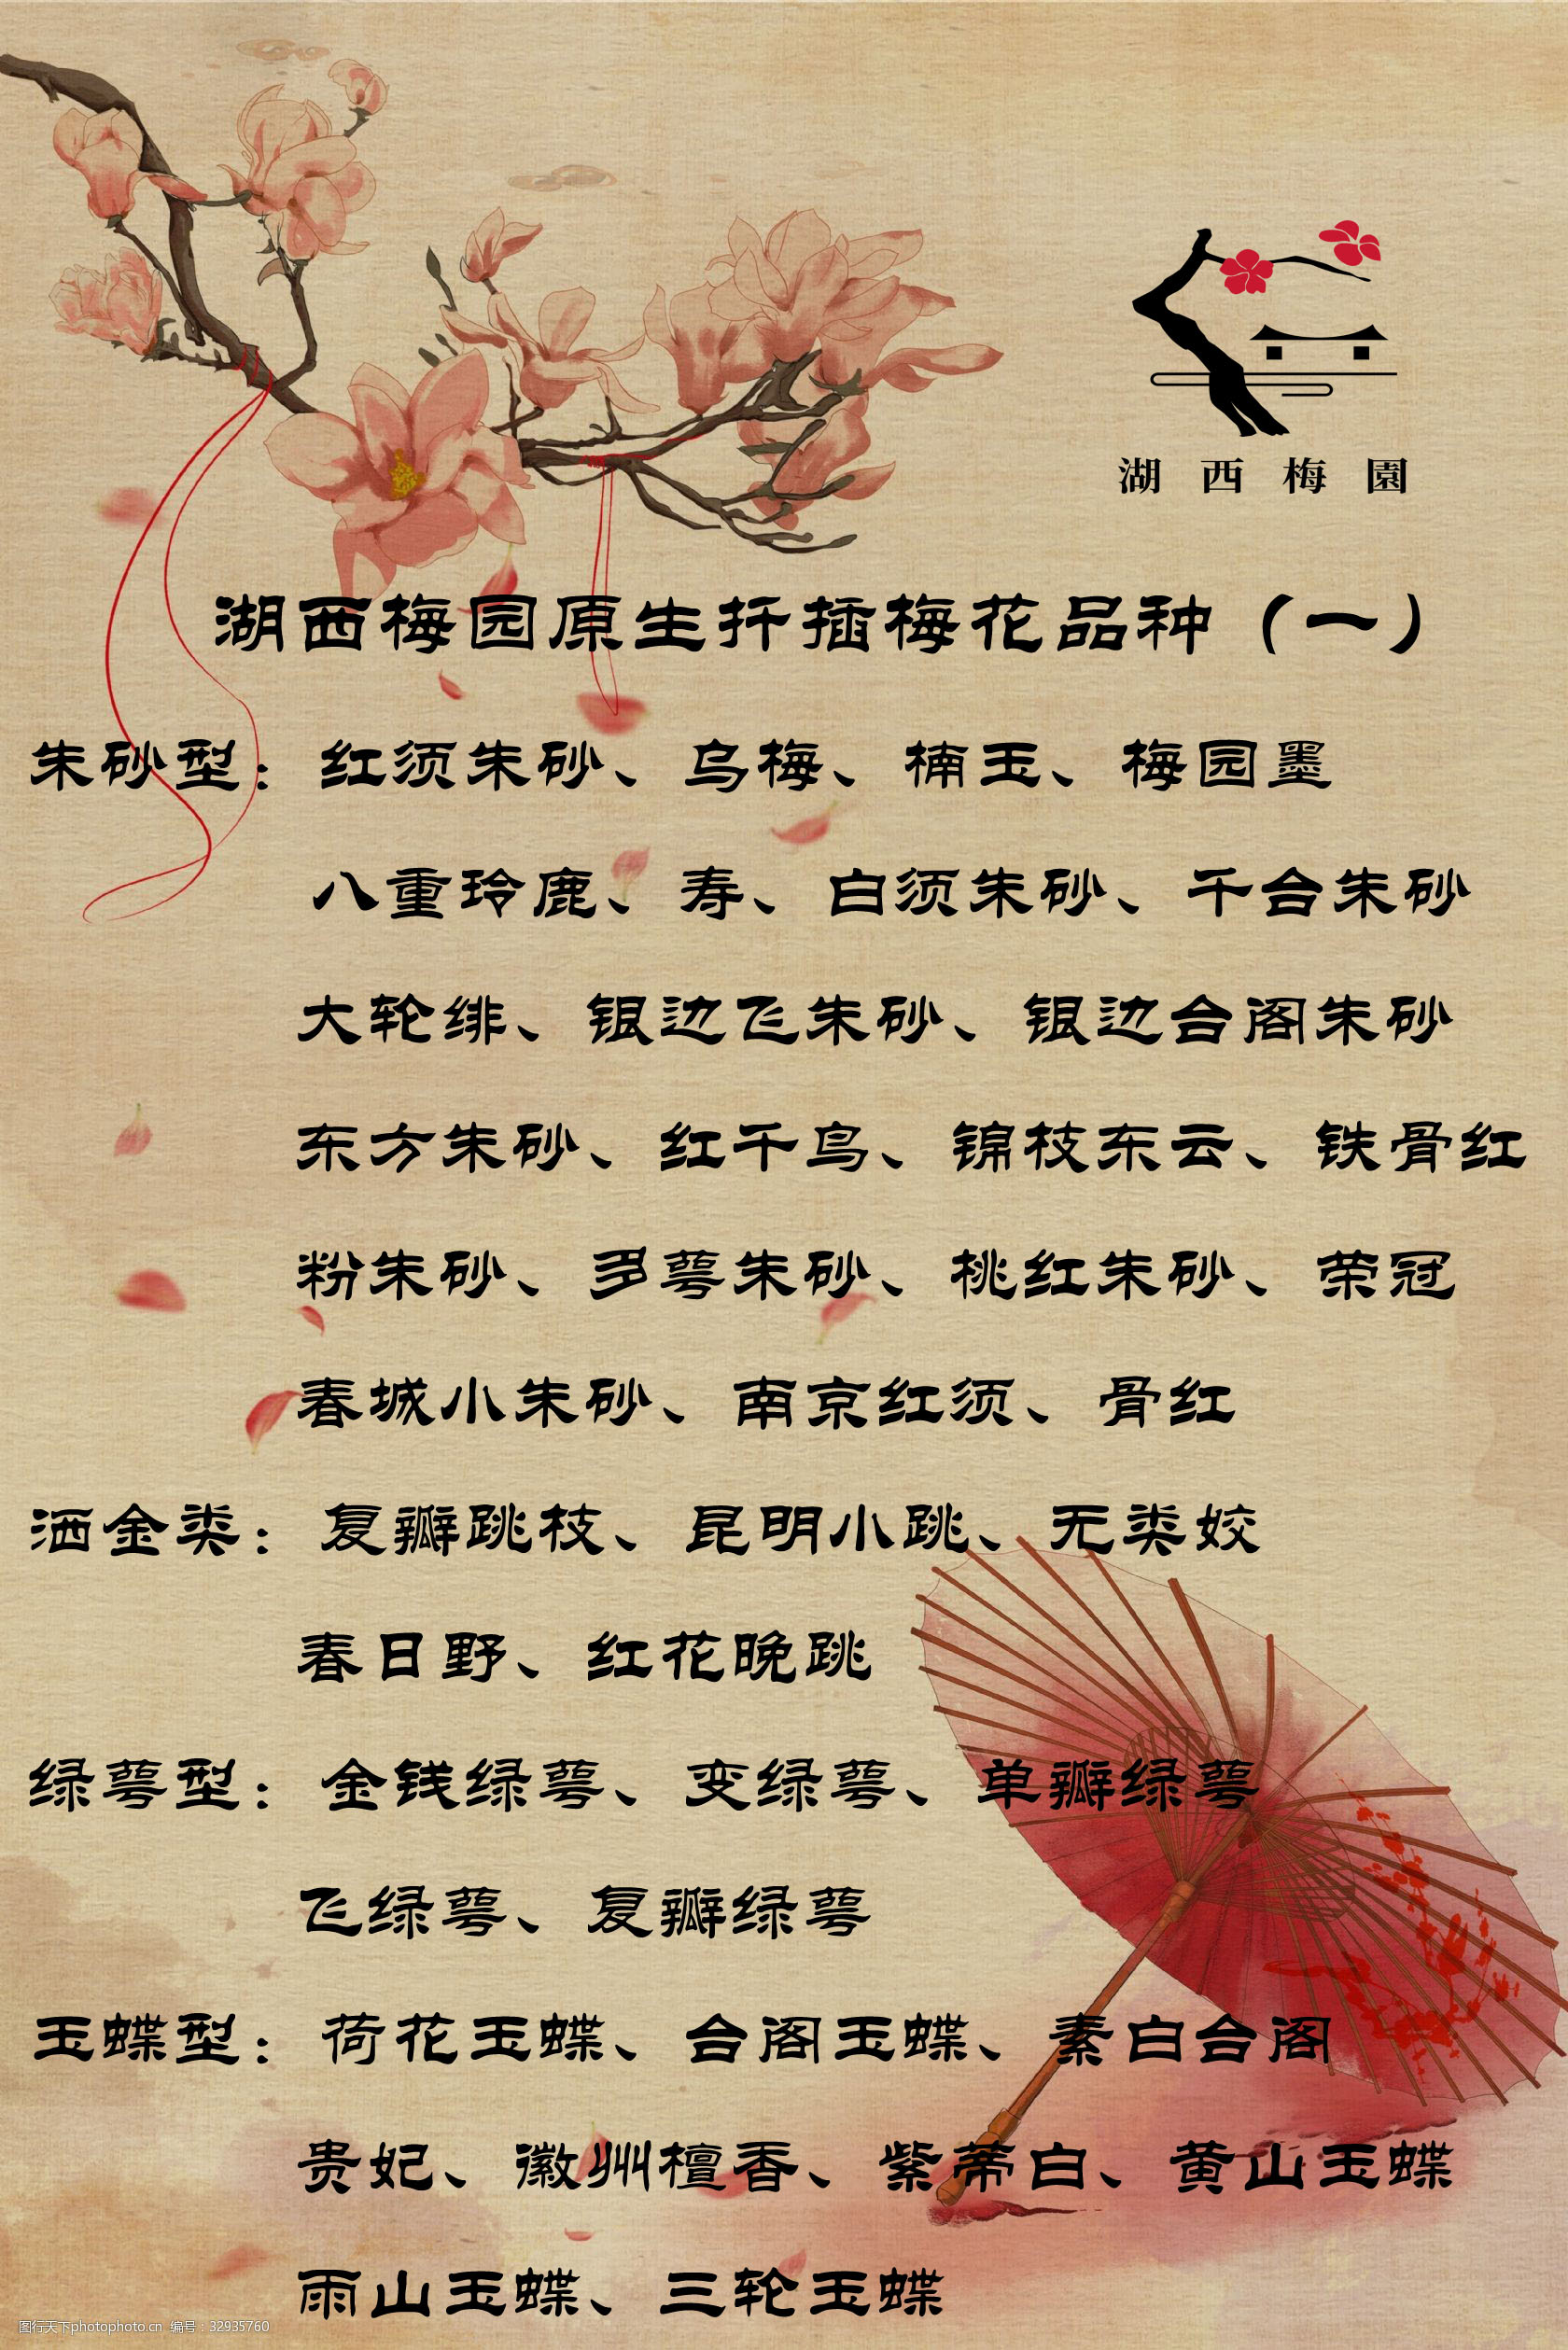 湖西梅園
湖西梅园原生扦插梅花品种（一）
朱砂型：红须朱砂、乌梅、楠玉、梅园墨
八重玲鹿、寿、白须朱砂、千台朱砂
大轮绯、银边飞朱砂、银边台阁朱砂
东方朱砂、红千鸟、锦枝东云、铁骨红
粉朱砂、多萼朱砂、桃红朱砂、荣冠
春城小朱砂、南京红须、骨红
洒金类：复瓣跳枝、昆明小跳、无类姣
春日野、红花晚跳
绿萼型：金钱绿萼、变绿萼、单瓣绿萼
飞绿萼、复瓣绿萼
玉蝶型：荷花玉蝶、台阁玉蝶、素白台阁
贵妃、徽州檀香、紫蒂白、黄山玉蝶
雨山玉蝶、三轮玉蝶
图行天下photophoto.cn 编号：32935760